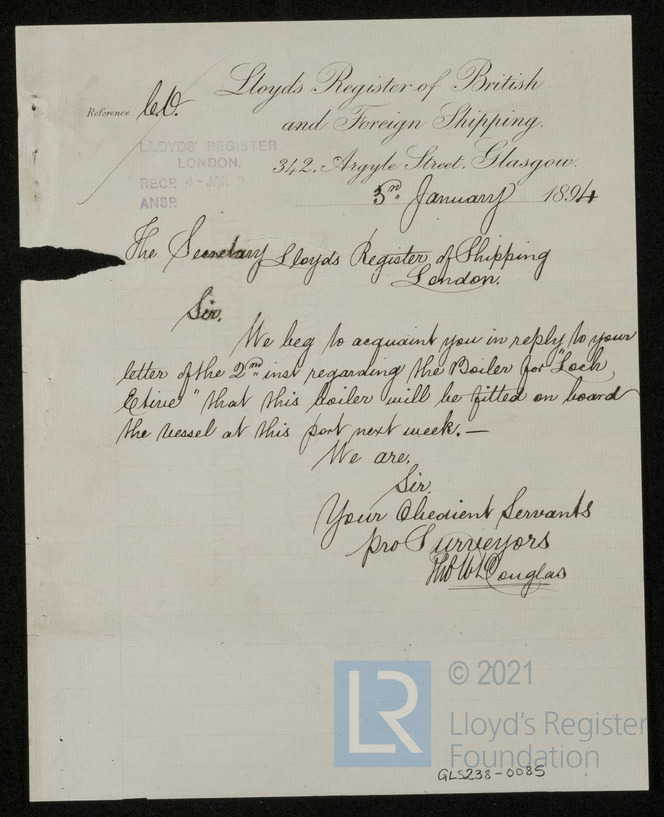 Lloyds Register of British
and Foreign Shipping.
Reference
342, Argyle Street, Glasgow.
LLOYDS' REGISTER
LONDON.
RECD. 4-JAN
ANSD.
3rd January 1894
The Secretary Lloyds Register of Shipping
London.
Sir,
We beg to acquaint you in reply to your
letter of the 2nd inst regarding the Boiler for "Loch
Etive" that this boiler will be fitted on board
the vessel at this port next week. —
We are,
Sir,
Your Obedient Servants
pro Surveyors
Douglas
LR
© 2021
Lloyd's Register
Foundation
GLS238-0085